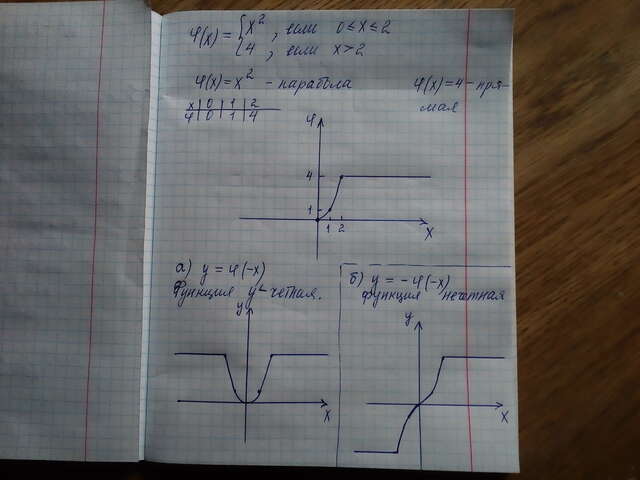 φ(x) = { x², если 0 ≤ x ≤ 2
4, если x > 2
φ(x) = x² - парабола φ(x) = 4 - пря-
мая
x | 0 | 1 | 2
φ | 0 | 1 | 4
φ
4
1
1 2
x
а) y = φ(-x)
Функция y - четная.
y
x
б) y = -φ(-x)
функция нечетная
y
x